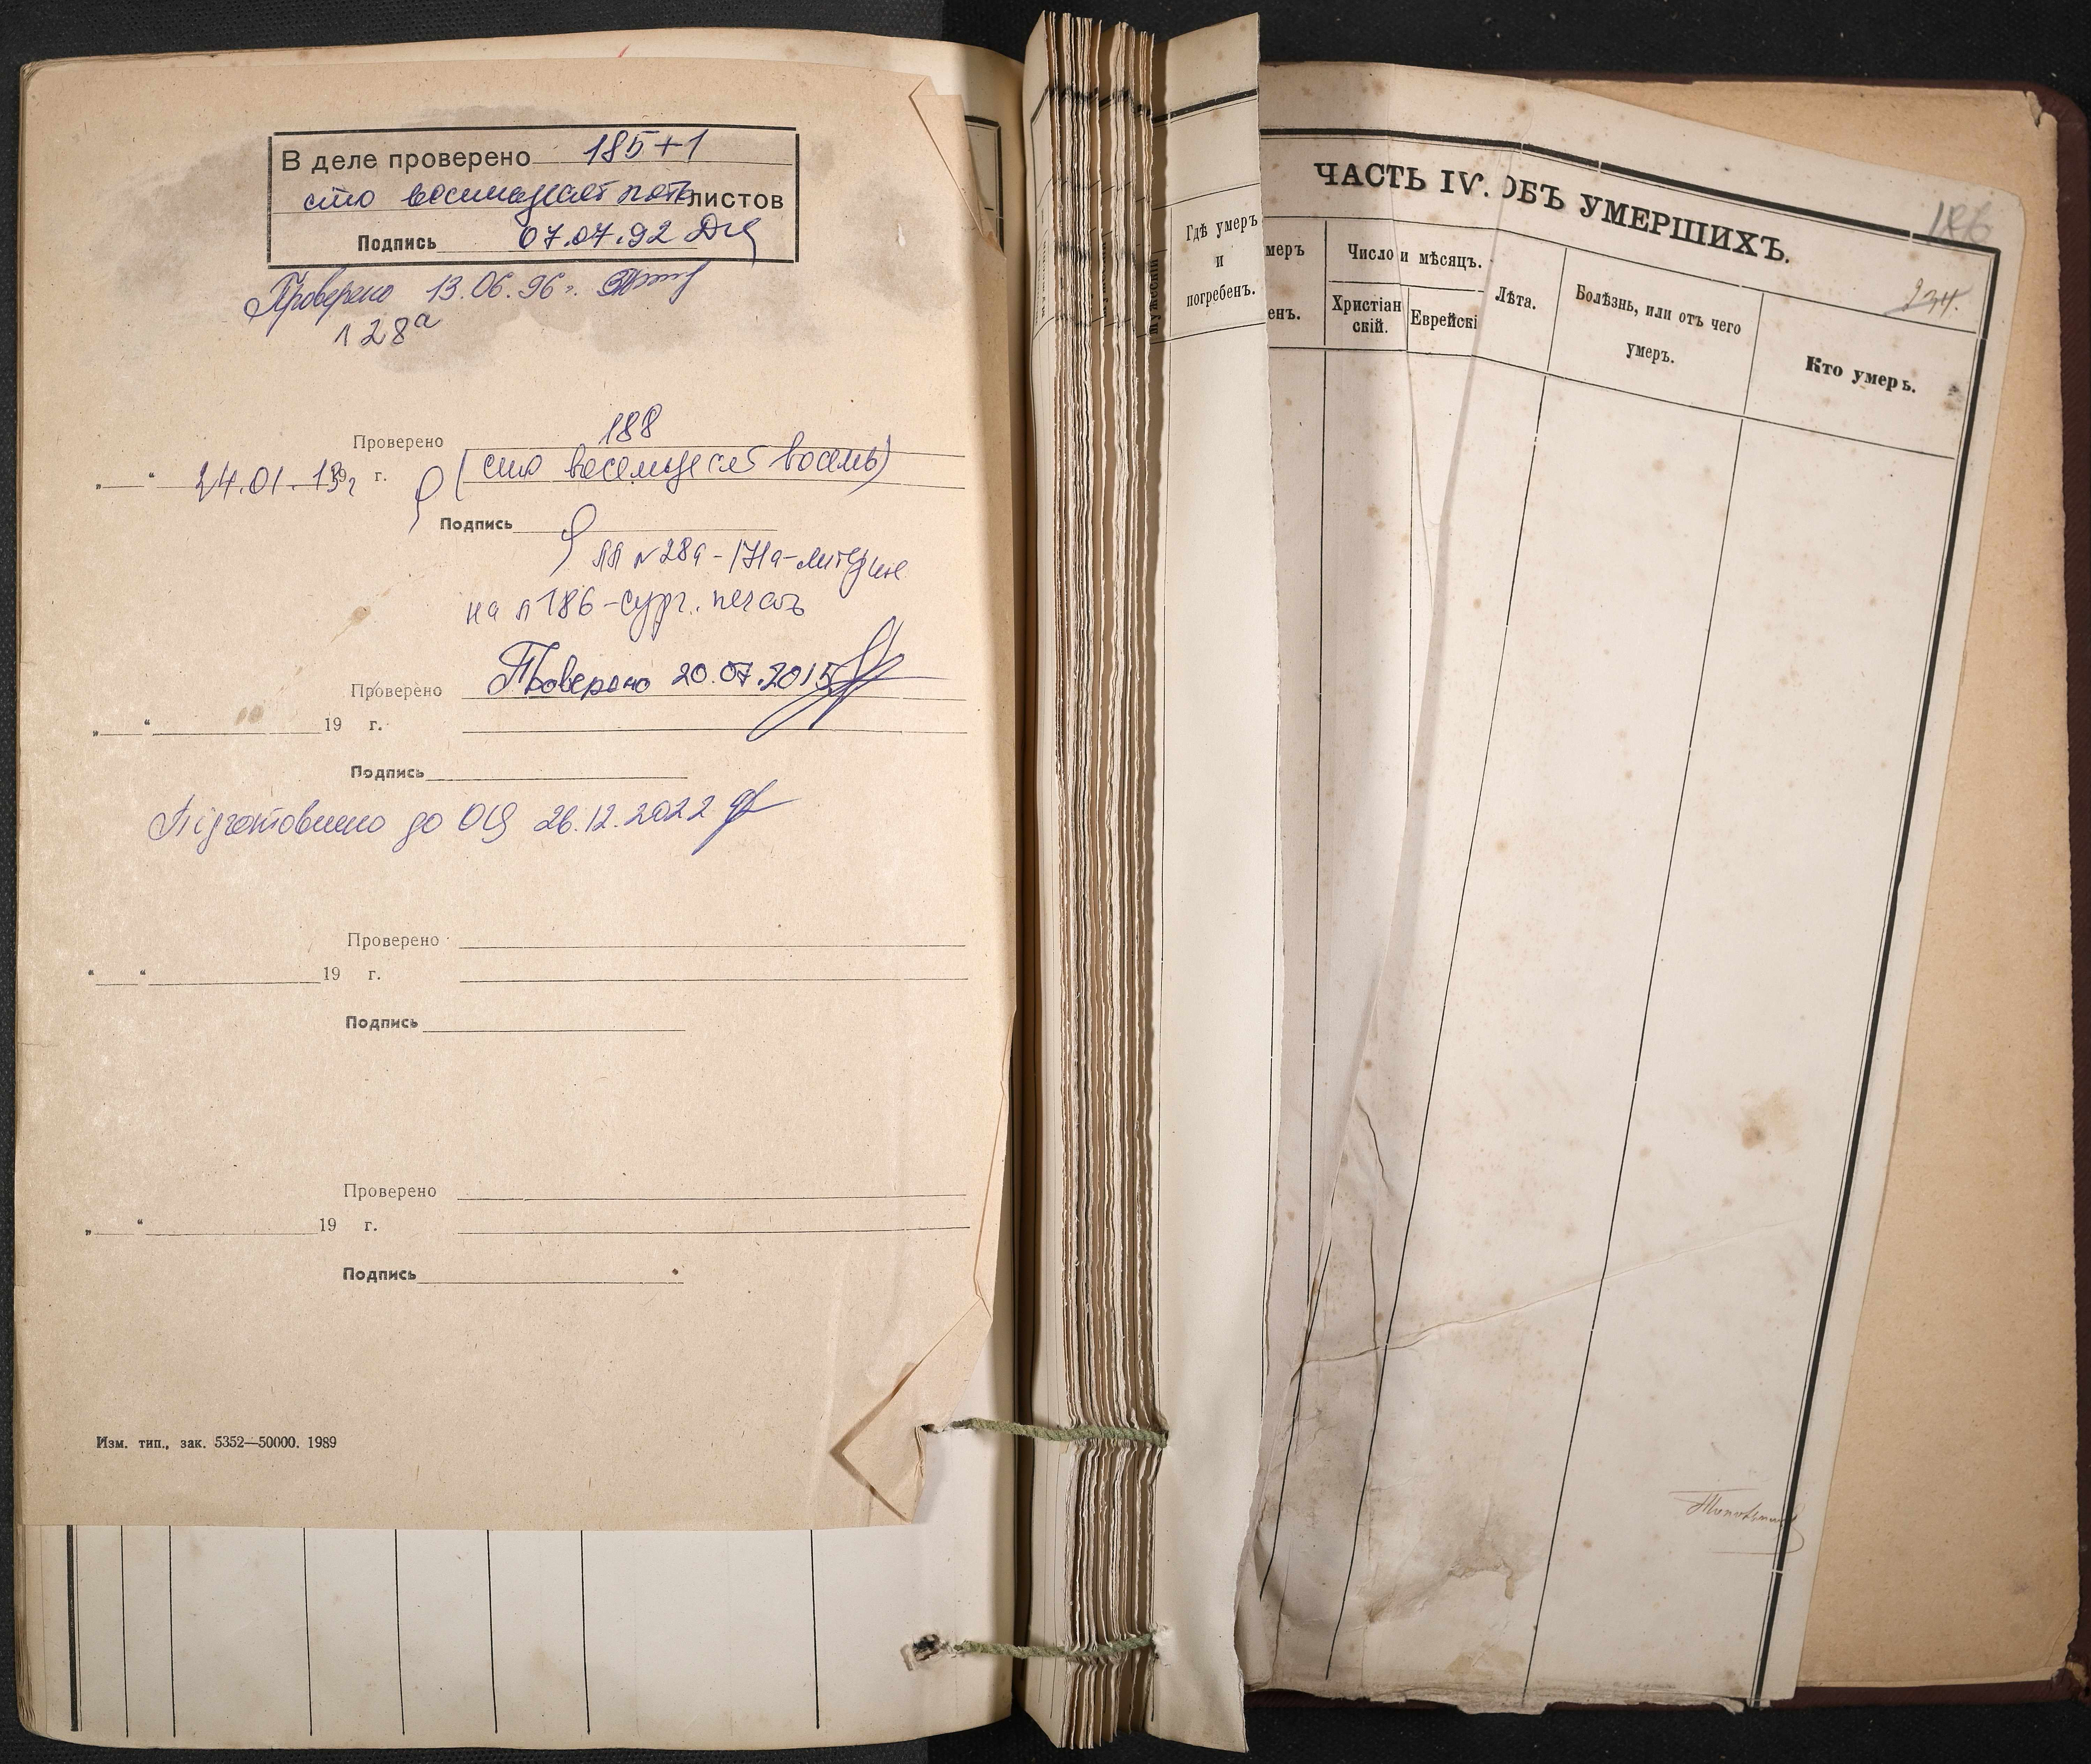 В деле проверено 185+1
сто восемьдесят пять листов
Подпись 07.07.92
Проверено 13.06.96 г.
л 28а
Проверено 188
„ “ 24.01.13г 19 г. (сто восемьдесят восемь)
Подпись
лл №28а-171а-литерные
на л 186-сург. печать
Проверено Проверено 20.07.2015
„ “ 19 г.
Подпись
Підготовлено до ОЦ 26.12.2022
Проверено
“ “ 19 г.
Подпись
Проверено
„ “ 19 г.
Подпись
Изм. тип., зак. 5352—50000. 1989
Мужескій
Гдѣ умеръ
и
погребенъ.
ЧАСТЬ IV. ОБЪ УМЕРШИХЪ.
186
234.
меръ
енъ.
Число и мѣсяцъ.
Христіан
скій.
Еврейскі
Лѣта.
Болѣзнь, или отъ чего
умеръ.
Кто умеръ.